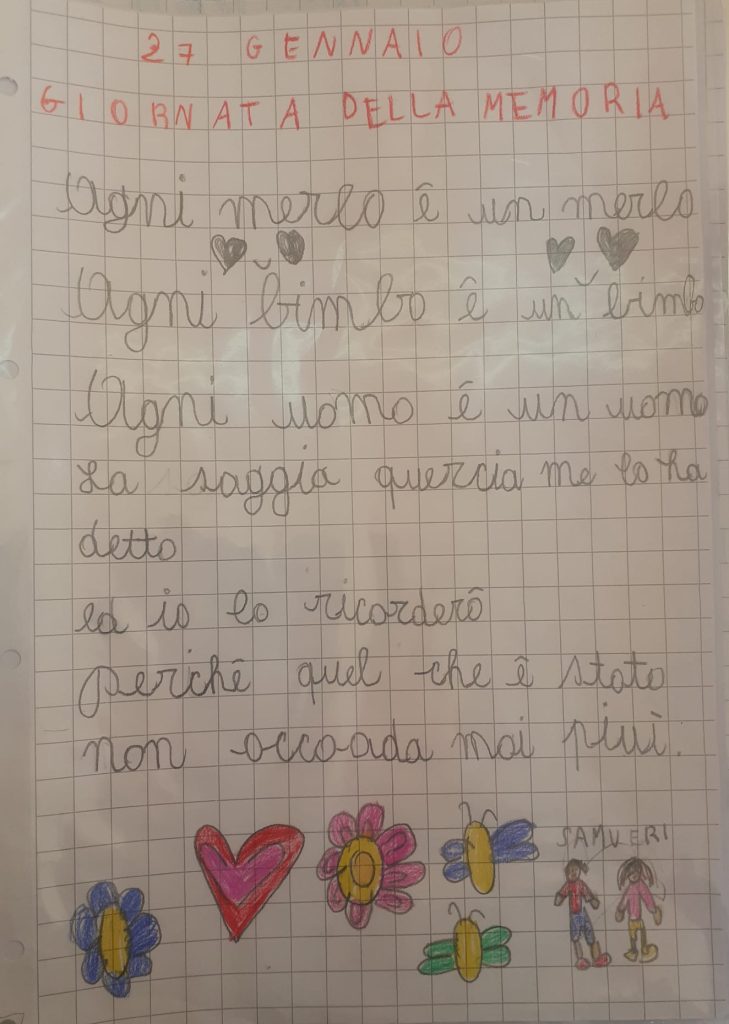 27 GENNAIO
GIORNATA DELLA MEMORIA
Ogni merlo è un merlo
Ogni bimbo è un bimbo
Ogni uomo è un uomo
La saggia quercia me lo ha
detto
ed io lo ricorderò
perché quel che è stato
non accoada mai più.
SAMVERI